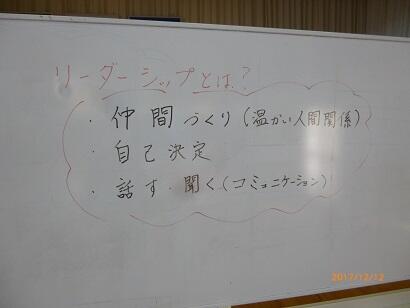 リーダーシップとは?
・仲間づくり(温かい人間関係)
・自己決定
・話す・聞く(コミュニケーション)
2017/12/12